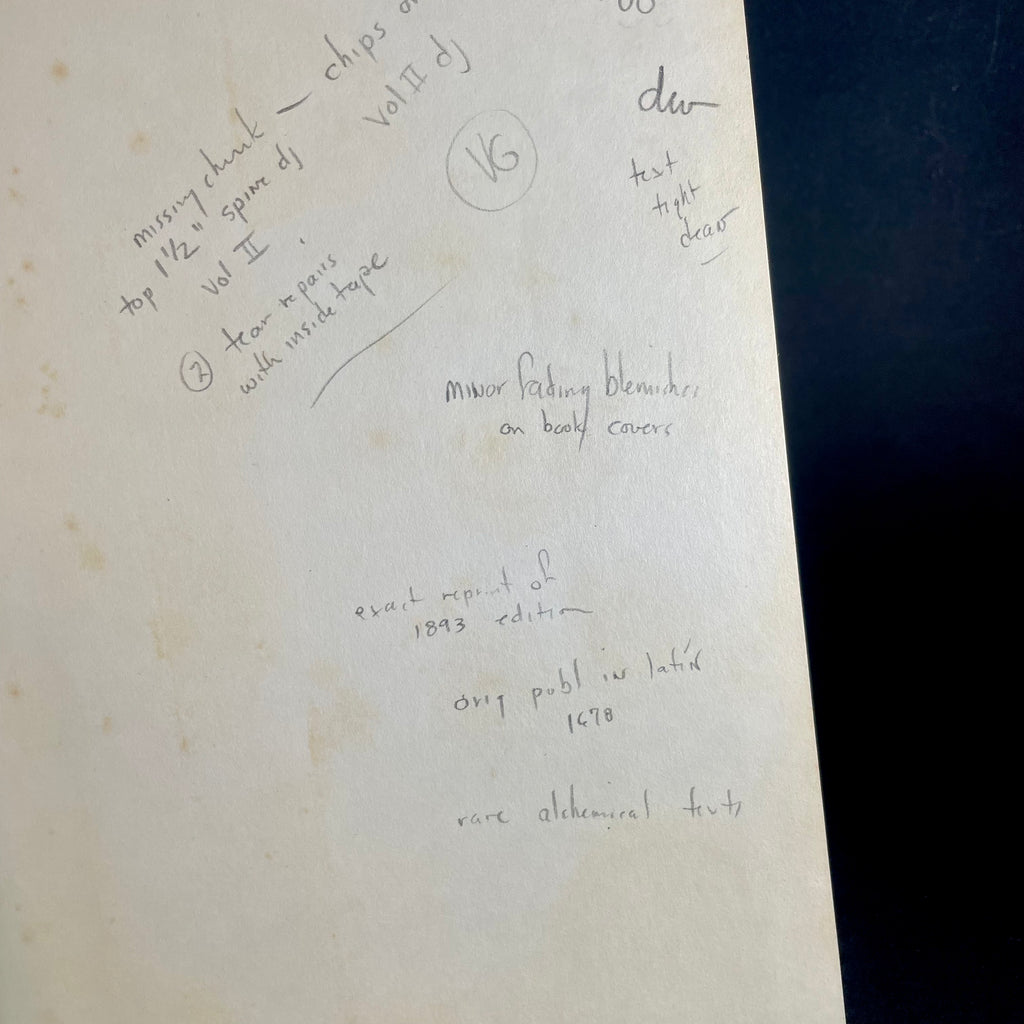 missing chunk — chips
top 1 1/2" spine dj
Vol II
Vol II dj
VG
text
tight
clean
② tear repairs
with inside tape
minor fading blemishes
on book covers
exact reprint of
1893 edition
orig publ in latin
1678
rare alchemical texts